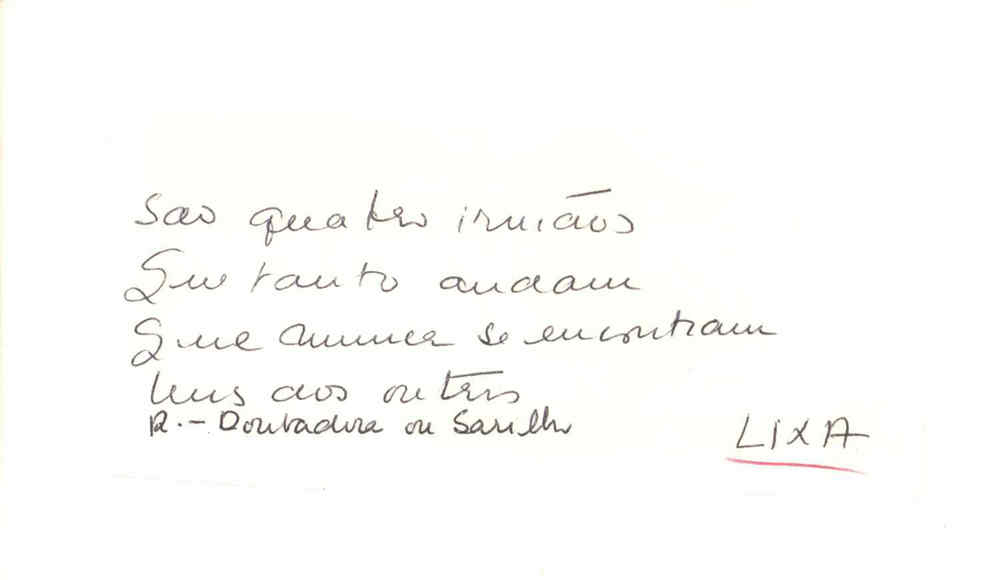 São quatro irmãos
Que tanto andam
Que nunca se encontram
Uns aos outros
R. - Doubadora ou Sarilho
LIXA